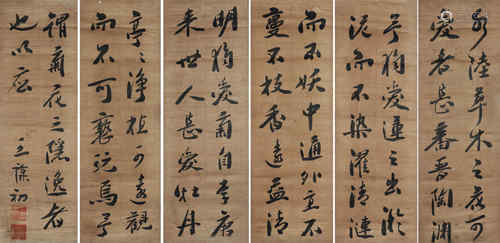 水陸草木之花可
愛者甚蕃晉陶淵
予獨愛蓮之出淤
泥而不染濯清漣
而不妖中通外直不
蔓不枝香遠益清
明獨愛菊自李唐
來世人甚愛牡丹
亭〻淨植可遠觀
而不可褻玩焉予
謂菊花之隱逸者
也以
初